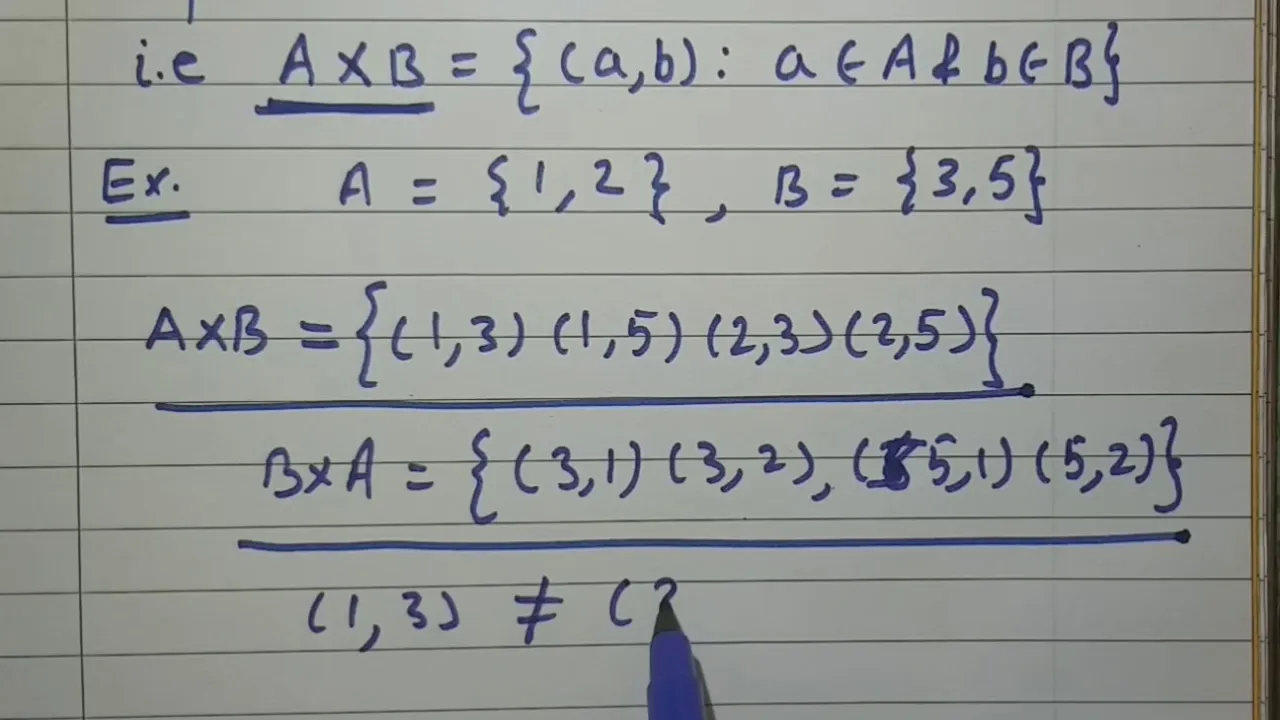 i.e A × B = {(a,b): a ∈ A & b ∈ B}
Ex. A = {1, 2}, B = {3, 5}
A×B = {(1,3) (1,5) (2,3) (2,5)}
B×A = {(3,1) (3,2), (5,1) (5,2)}
(1,3) ≠ (